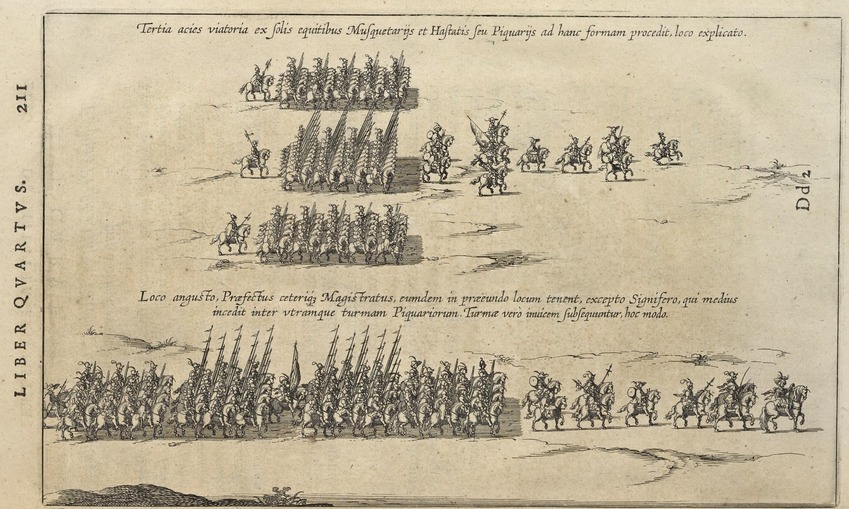 Tertia acies viatoria ex ſolis equitibus Muſquetarijs et Haſtatis ſeu Piquarijs ad hanc formam procedit, loco explicato.
Loco anguſto, Præfectus ceteriq₃ Magiſtratus, eumdem in præeundo locum tenent, excepto Signifero, qui medius
incedit inter vtramque turmam Piquariorum. Turmæ vero inuicem ſubſequuntur, hoc modo.
LIBER QVARTVS. 211
Dd 2